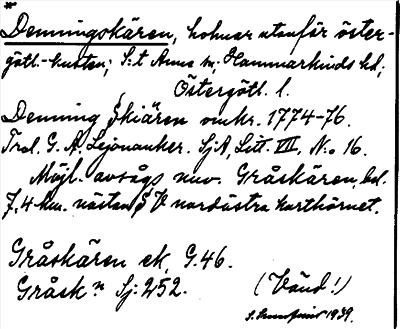 *
Denningskären, holmar utanför öster-
götl.-kusten; S:t Anna sn; Hammarkinds hd;
Östergötl. l.
Denning Skiären omkr. 1774-76.
Trol. G. A. Lejonanker. SjA, Litt. VIII, N:o 16.
Möjl. avsågs nuv. Gråskären, bel.
7,4 km. nästan S V nordöstra karthörnet.
Gråskären ek. G.46.
Gråsk n Sj:252.
(Vänd!)
1939.